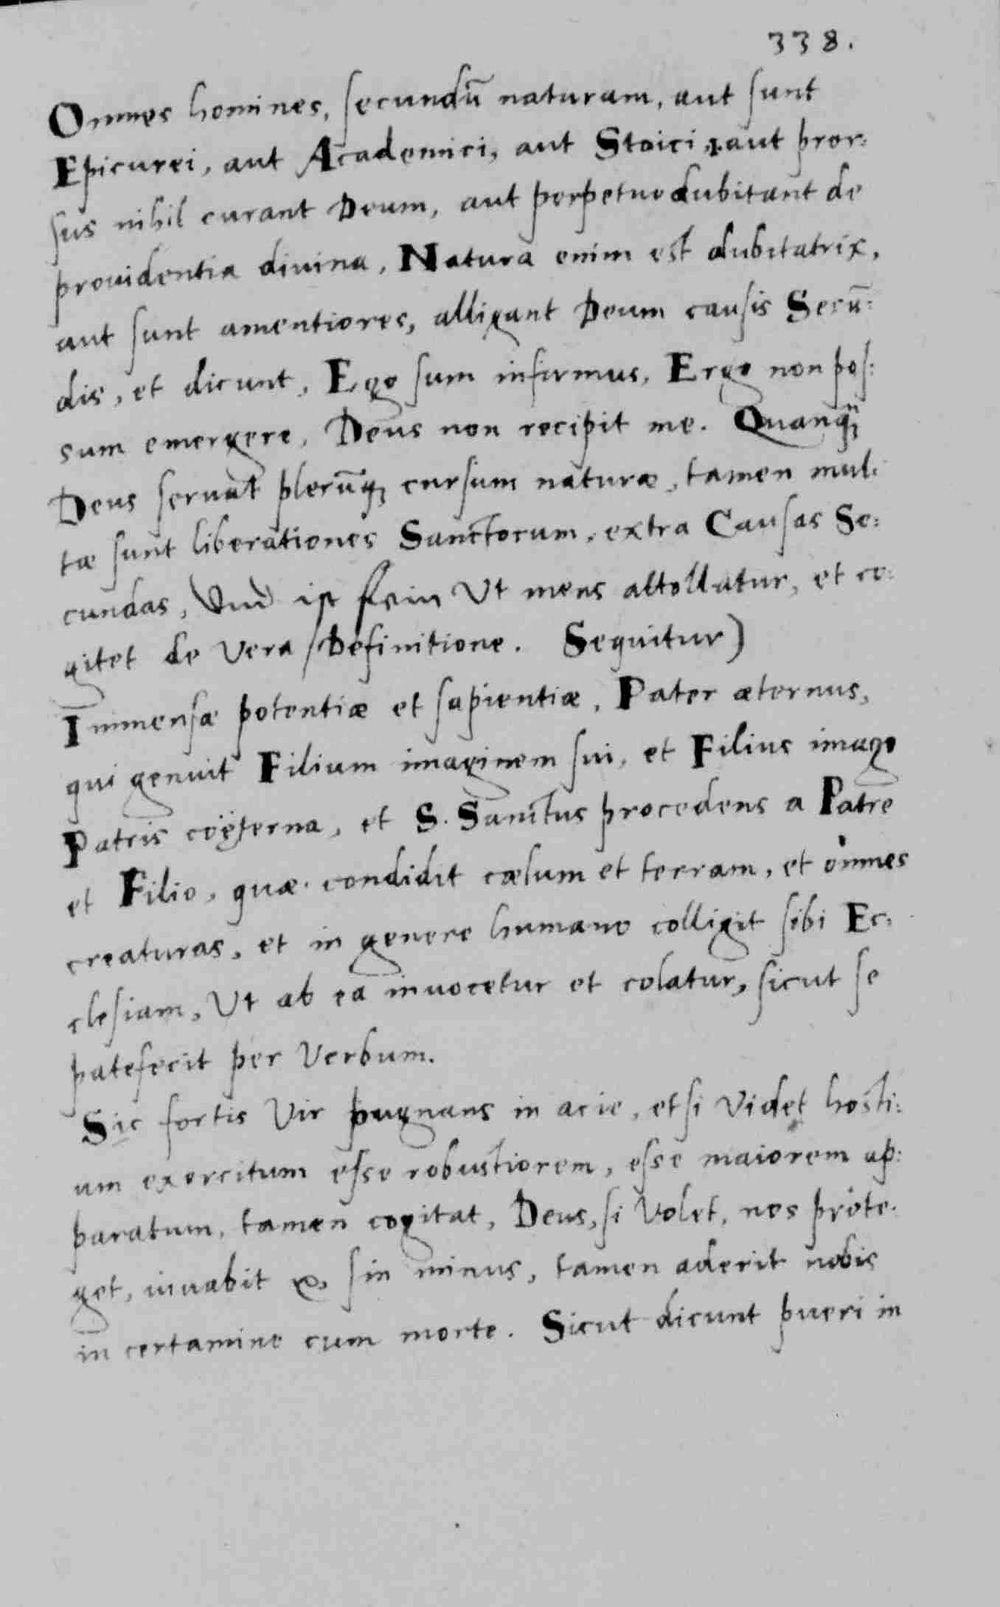 338.
Omnes homines, secundū naturam, aut sunt
Epicurei, aut Academici, aut Stoici, aut pror:
sus nihil curant Deum, aut perpetuo dubitant de
prouidentia diuina, Natura enim est dubitatrix,
aut sunt amentiores, alligant Deum causis Secū:
dis, et dicunt, Ego sum infirmus, Ergo non pos:
sum emergere, Deus non recipit me. Quanqꝫ
Deus seruat plerūqꝫ cursum naturæ, tamen mul:
tæ sunt liberationes Sanctorum, extra Causas Se:
cundas, Vnd ist fein Vt mens attollatur, et co:
gitet de Vera Definitione. Sequitur)
Immensæ potentiæ et sapientiæ, Pater æternus,
qui genuit Filium imaginem sui, et Filius imago
Patris coęterna, et S. Sanctus procedens a Patre
et Filio, quæ condidit cælum et terram, et omnes
creaturas, et in genere humano colligit sibi Ec:
clesiam, Vt ab ea inuocetur et colatur, sicut se
patefecit per Verbum.
Sic fortis Vir pugnans in acie, etsi Videt hosti:
um exercitum esse robustiorem, esse maiorem ap:
paratum, tamen cogitat, Deus, si Volet, nos prote:
get, iuuabit &, sin minus, tamen aderit nobis
in certamine cum morte. Sicut dicunt pueri in